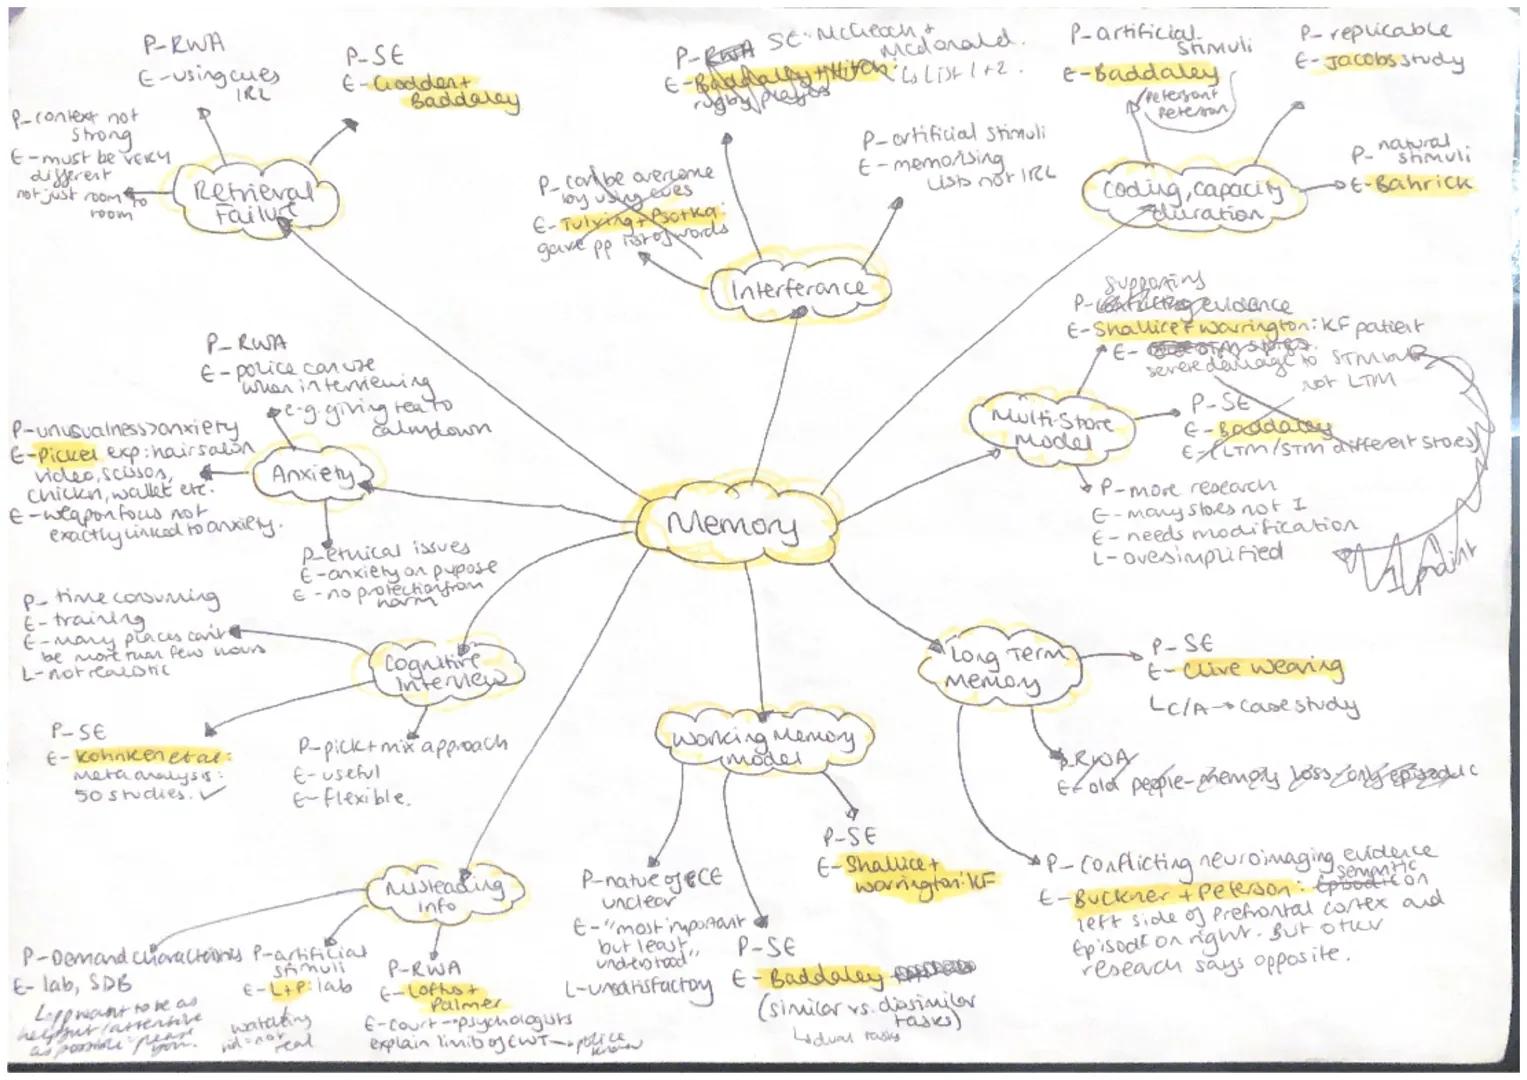 P-RWA
E-using cues
IRL
P-SE
E-Godden+
Baddaley
P-context not
strong
E-must be very
different
not just room to
room
Retrieval
Failure
P-RWA SE-McGeoch +
Mcdonald.
E-Baddaley+Hitch: Ls List 1+2.
rugby players
P-can be overcome
by using cues
E-Tulving+Psotka:
gave pp list of words
P-artificial stimuli
E-memorising
lists not IRL
Interferance
P-artificial
stimuli
E-Baddaley
Peterson+
Peterson
P-replicable
E-Jacobs study
P-natural
stimuli
E-Bahrick
Coding, capacity
duration
Supporting
P-conflicting evidence
E-Shallice+Warrington: KF patient
E-
severe damage to STM but
not LTM
P-SE
E-Baddaley
E-(LTM/STM different stores)
P-more research
E-many stores not 1
E-needs modification
L-oversimplified
1 point
Multi-Store
Model
P-RWA
E-police can use
when interviewing
e.g. giving tea to
calm down
P-unusualness>anxiety
E-Pickel exp: hair salon
video, scissors,
chicken, wallet etc.
E-weapon focus not
exactly linked to anxiety.
Anxiety
P-ethical issues
E-anxiety on pupose
E-no protection from
harm
Memory
P-time consuming
E-training
E-many places can't
be more than few hours
L-not realistic
Cognitive
Interview
P-SE
E-Kohnken et al:
meta analysis:
50 studies. ✓
P-pick+mix approach
E-useful
E-flexible.
Long Term
Memory
P-SE
E-Clive Wearing
L C/A → case study
P-RWA
E-old people-memory loss-only episodic
P-Conflicting neuroimaging evidence
semantic
E-Buckner+Peterson: Episodic on
left side of prefrontal cortex and
Episodic on right. But other
research says opposite.
Working Memory
Model
P-nature of CE
unclear
E-"most important
but least
understood"
L-unsatisfactory
P-SE
E-Baddaley
(similar vs. dissimilar
tasks)
↳dual tasks
P-SE
E-Shallice+
Warrington: KF
Misleading
info
P-Demand characteristics
E-lab, SDB
L-pp want to be as
helpful/attentive
as possible
P-artificial
stimuli
E-L+P: lab
watching
vid=not
real
P-RWA
E-Loftus+
Palmer
E-court→psychologists
explain limits of EWT→police